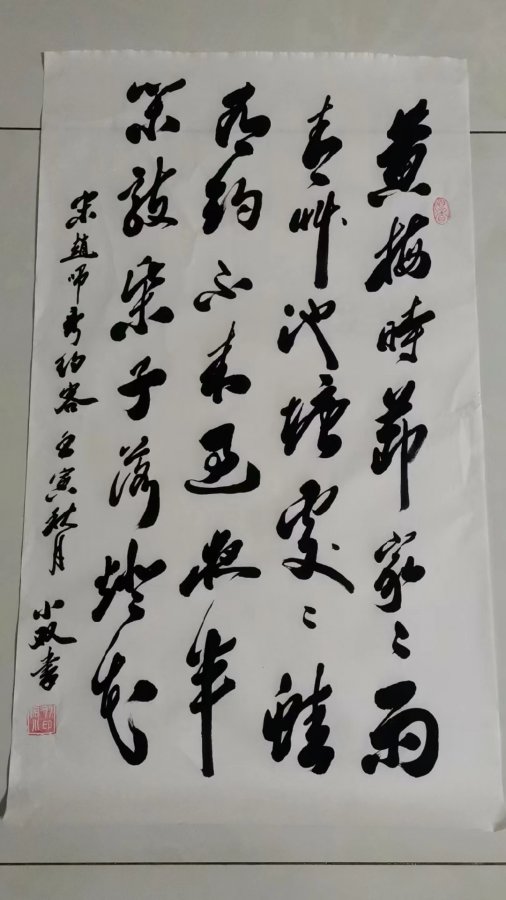 黄梅時節家〻雨
青艸池塘處〻蛙
有約不来過夜半
閑敲棊子落燈花
宋趙師秀約客 壬寅秋月 小双書